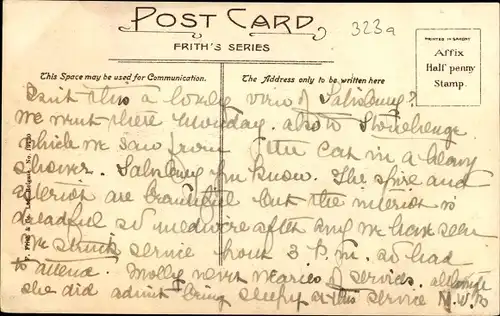 POST CARD
323a
FRITH'S SERIES
PRINTED IN SAXONY
Affix
Half penny
Stamp.
This Space may be used for Communication.
The Address only to be written here
Isn't this a lovely view of Salisbury?
We went there Monday. also to Stonehenge
which we saw from the car in a heavy
shower. Salisbury you know. The spire and
exterior are beautiful but the interior is
dreadful so mediocre after any we have seen
We struck service from 3 P.m. so had
to attend. Molly never wearies of services, although
she did admit being sleepy at this service